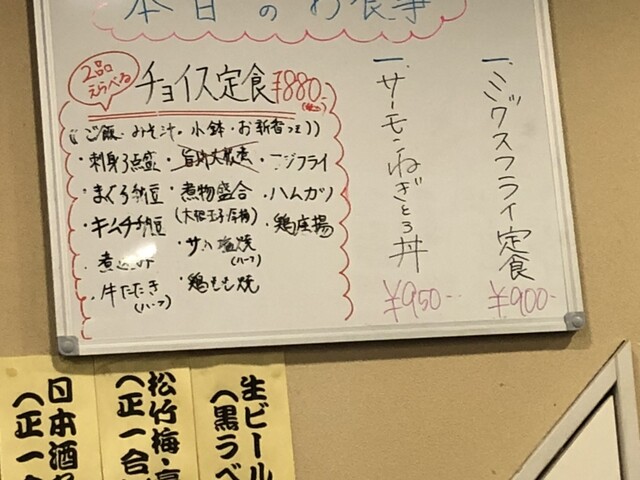 本日のお食事
一、ミックスフライ定食
¥900-
一、サーモンねぎとろ丼
¥950-
2品
えらべる
チョイス定食 ¥880-
(ご飯・みそ汁・小鉢・お新香つき)
・刺身3点盛
・まぐろ納豆
・キムチ納豆
・牛たたき
(ハーフ)
・煮物盛合
・鶏もも焼
(ハーフ)
・アジフライ
・ハムカツ
・鶏唐揚
生ビール
(黒ラベ
松竹梅・豪
(正一合
日本酒
(正一合